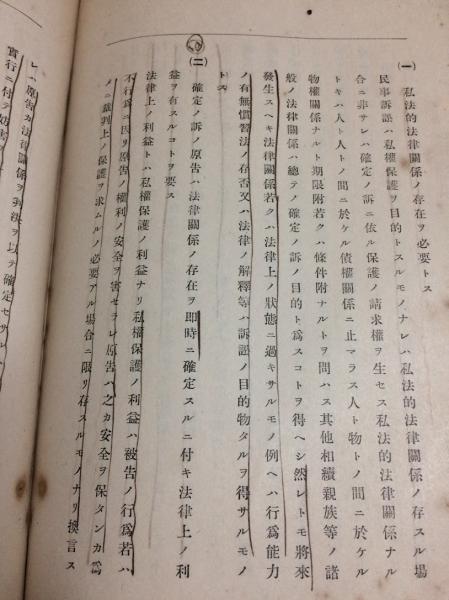 (一) 私法的法律關係ノ存在ヲ必要トス
民事訴訟ハ私權保護ヲ目的トスルモノナレハ私法的法律關係ノ存スル場
合ニ非サレハ確定ノ訴ニ依ル保護ノ請求權ヲ生セス私法的法律關係ナル
トキハ人ト人トノ間ニ於ケル債權關係ニ止マラス人ト物トノ間ニ於ケル
物權關係ナルト期限附若クハ條件附ナルトヲ問ハス其他相續親族等ノ諸
般ノ法律關係ハ總テノ確定ノ訴ノ目的ト爲スコトヲ得ヘシ然レトモ將來
發生スヘキ法律關係若クハ法律上ノ狀態ニ過キサルモノ例ヘハ行爲能力
ノ有無慣習法ノ存否又ハ法律ノ解釋等ハ訴訟ノ目的物タルヲ得サルモノ
トス
(二) 確定ノ訴ノ原告ハ法律關係ノ存在ヲ卽時ニ確定スルニ付キ法律上ノ利
益ヲ有スルコトヲ要ス
法律上ノ利益トハ私權保護ノ利益ナリ私權保護ノ利益ハ被告ノ行爲若ハ
不行爲ニ因リ原告ノ權利ノ安全ヲ害セラレ原告ハ之カ安全ヲ保タンカ爲
メニ裁判上ノ保護ヲ求ムルノ必要アル場合ニ限リ存スルモノナリ換言ス
レハ原告カ法律關係ヲ判決ヲ以テ確定セサレ
實行ニ付テ妨害